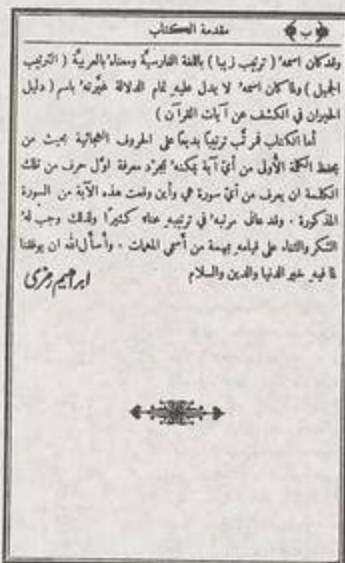 ﴿ ب ﴾ مقدمة الكتاب
وقد كان اسمهُ ( ترتيب زيبا ) باللغة الفارسيَّة ومعناهُ بالعربيَّة ( الترتيب
الجميل ) ولما كان اسمهُ لا يدل عليهِ تمام الدلالة غيَّرتهُ باسم ( دليل
الحيران في الكشف عن آيات القرآن )
أما الكتاب فمرتَّب ترتيباً بديعاً على الحروف الهجائية بحيث من
يحفظ الكلمة الأولى من أيّ آية يمكنهُ بمجرَّد معرفة اوّل حرف من تلك
الكلمة ان يعرف من أيّ سورة هي وأين وقعت هذه الآية من السورة
المذكورة . وقد عانى مرتبهُ في ترتيبهِ عناء كثيرًا ولذلك وجب لهُ
الشكر والثناء على قيامهِ بمهمة من أسمى المهمات . وأسأل الله ان يوفقنا
لما فيهِ خير الدنيا والدين والسلام ابراهيم رمزى